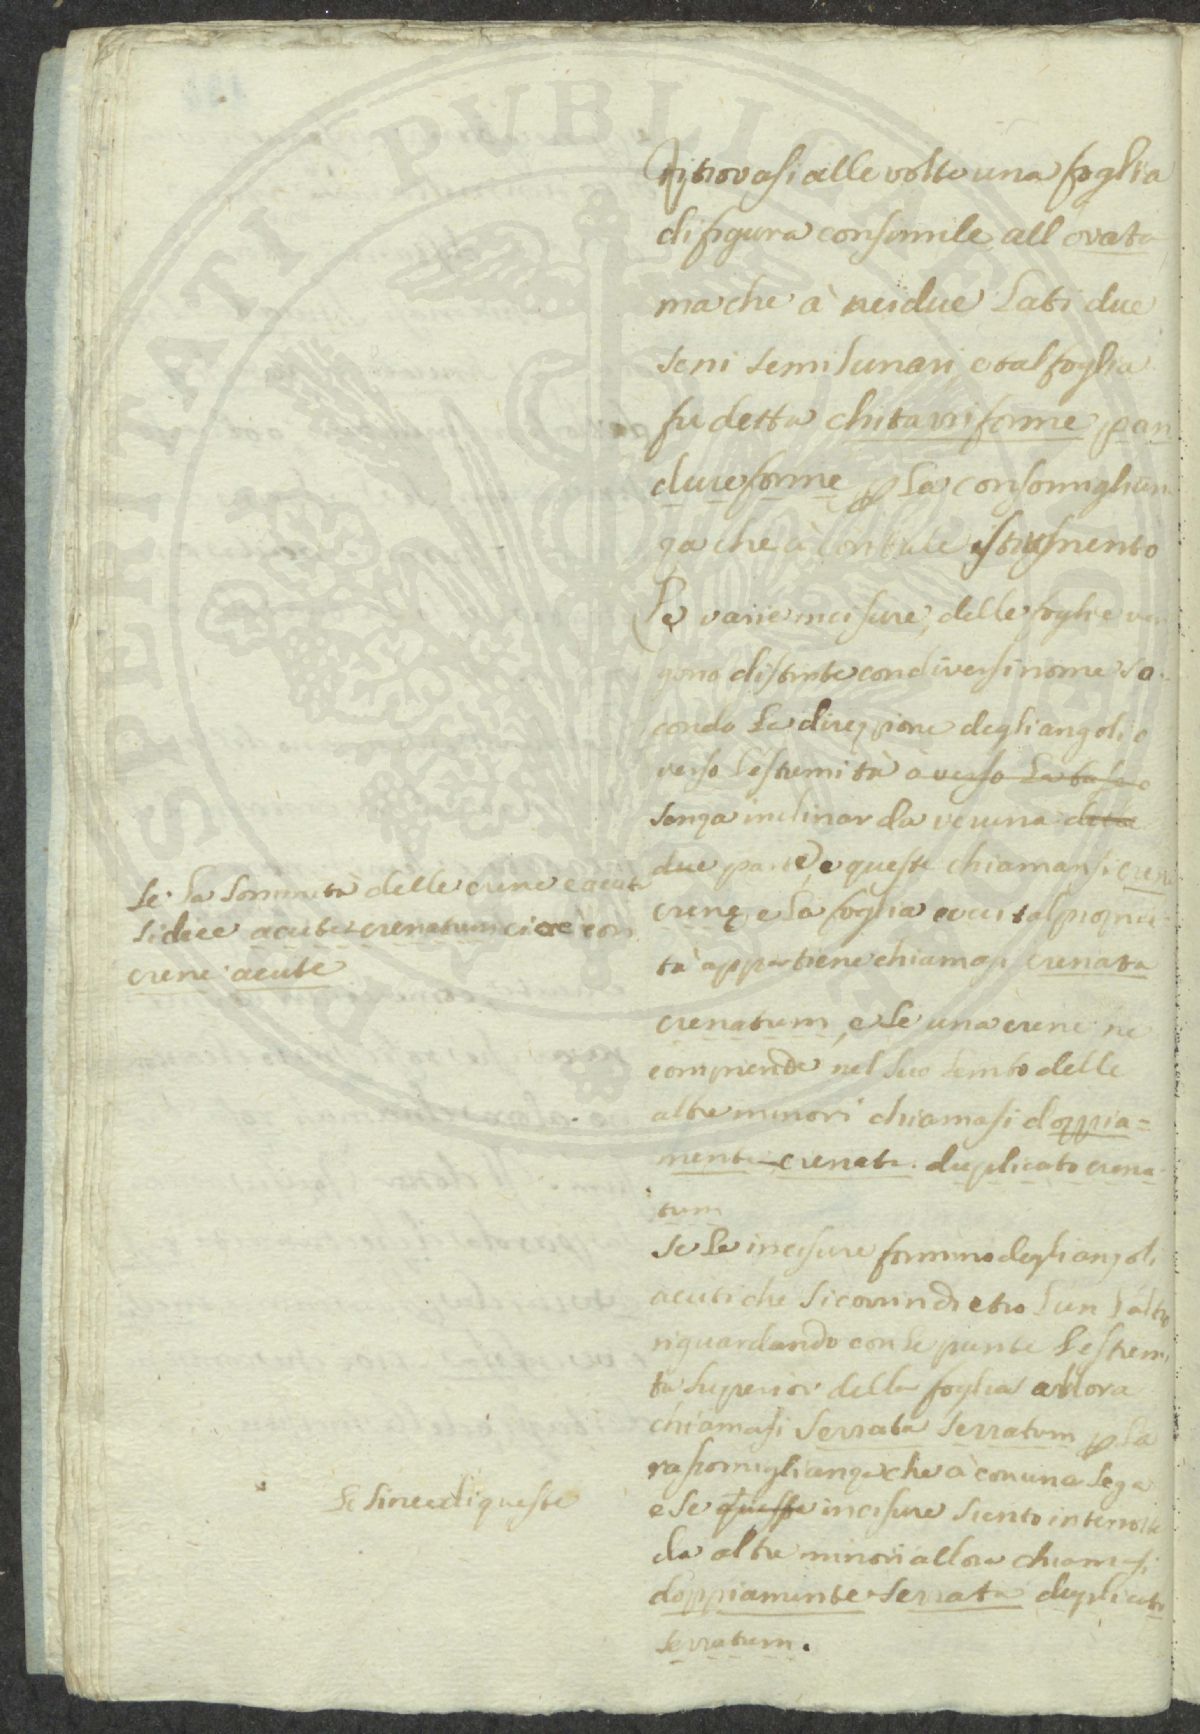 Ritrovasi alle volte una foglia
di figura consimile all ovata
ma che à nei due lati due
seni semilunari e tal foglia
fu detta chitarriforme pan
dureforme p la consomiglian
za che à con tale istrumento
Le varie incisure delle foglie ven
gono distinte con diversi nome se
condo la direzzione degli angoli o
verso l'estremità o verso la base o
senza inclinar da veruna dele
due parte, e queste chiamansi crene
crene, e la foglia a cui tal proprie
tà appartiene chiamasi crenata
crenatum, e se una crene ne
comprende nel suo lembo delle
altre minori chiamasi doppia=
mente crenata. duplicato crena
tum
Se le incisure formino degli angoli
acuti che si corrin dietro l'un l'altro
riguardando con le punte l'estremi
tà superior della foglia allora
chiamasi serrata serratum p la
rasomiglianza che à con una sega
e se queste incisure siento interrotte
da altre minori allora chiamasi
doppiamente serrata duplicato
serratum.
Se la sommità delle crene è acuta
si dice acute crenatum cioè con
crene acute
Le linee di queste
SPERITATI PUBLICAE